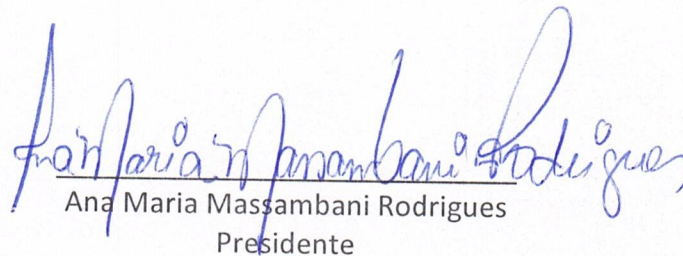 Ana Maria Massambani Rodrigues
Ana Maria Massambani Rodrigues
Presidente